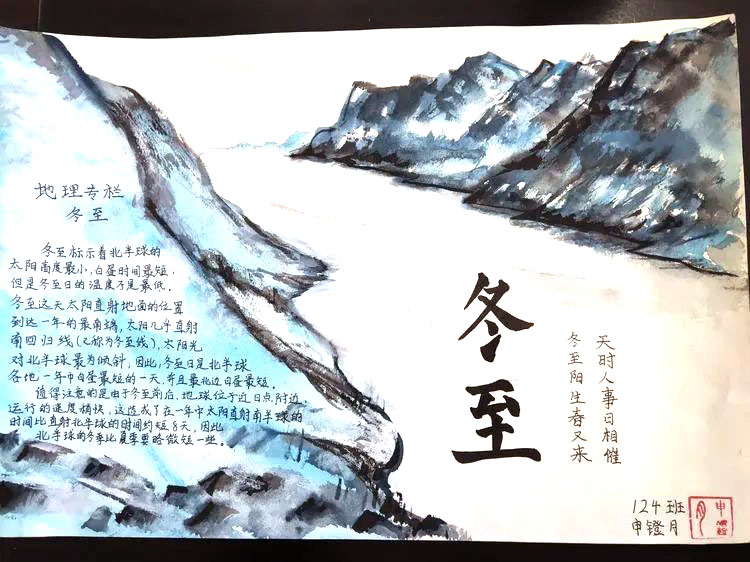 地理专栏
冬至
冬至标示着北半球的
太阳高度最小，白昼时间最短，
但是冬至日的温度不是最低。
冬至这天太阳直射地面的位置
到达一年的最南端，太阳几乎直射
南回归线（又称为冬至线），太阳光
对北半球最为倾斜，因此，冬至日是北半球
各地一年中白昼最短的一天，并且最北边白昼最短。
值得注意的是由于冬至前后，地球位于近日点附近，
运行的速度稍快，这造成了在一年中太阳直射南半球的
时间比直射北半球的时间约短8天，因此
北半球的冬季比夏季要略微短一些。
冬至
天时人事日相催
冬至阳生春又来
124班
申镫月
申
月